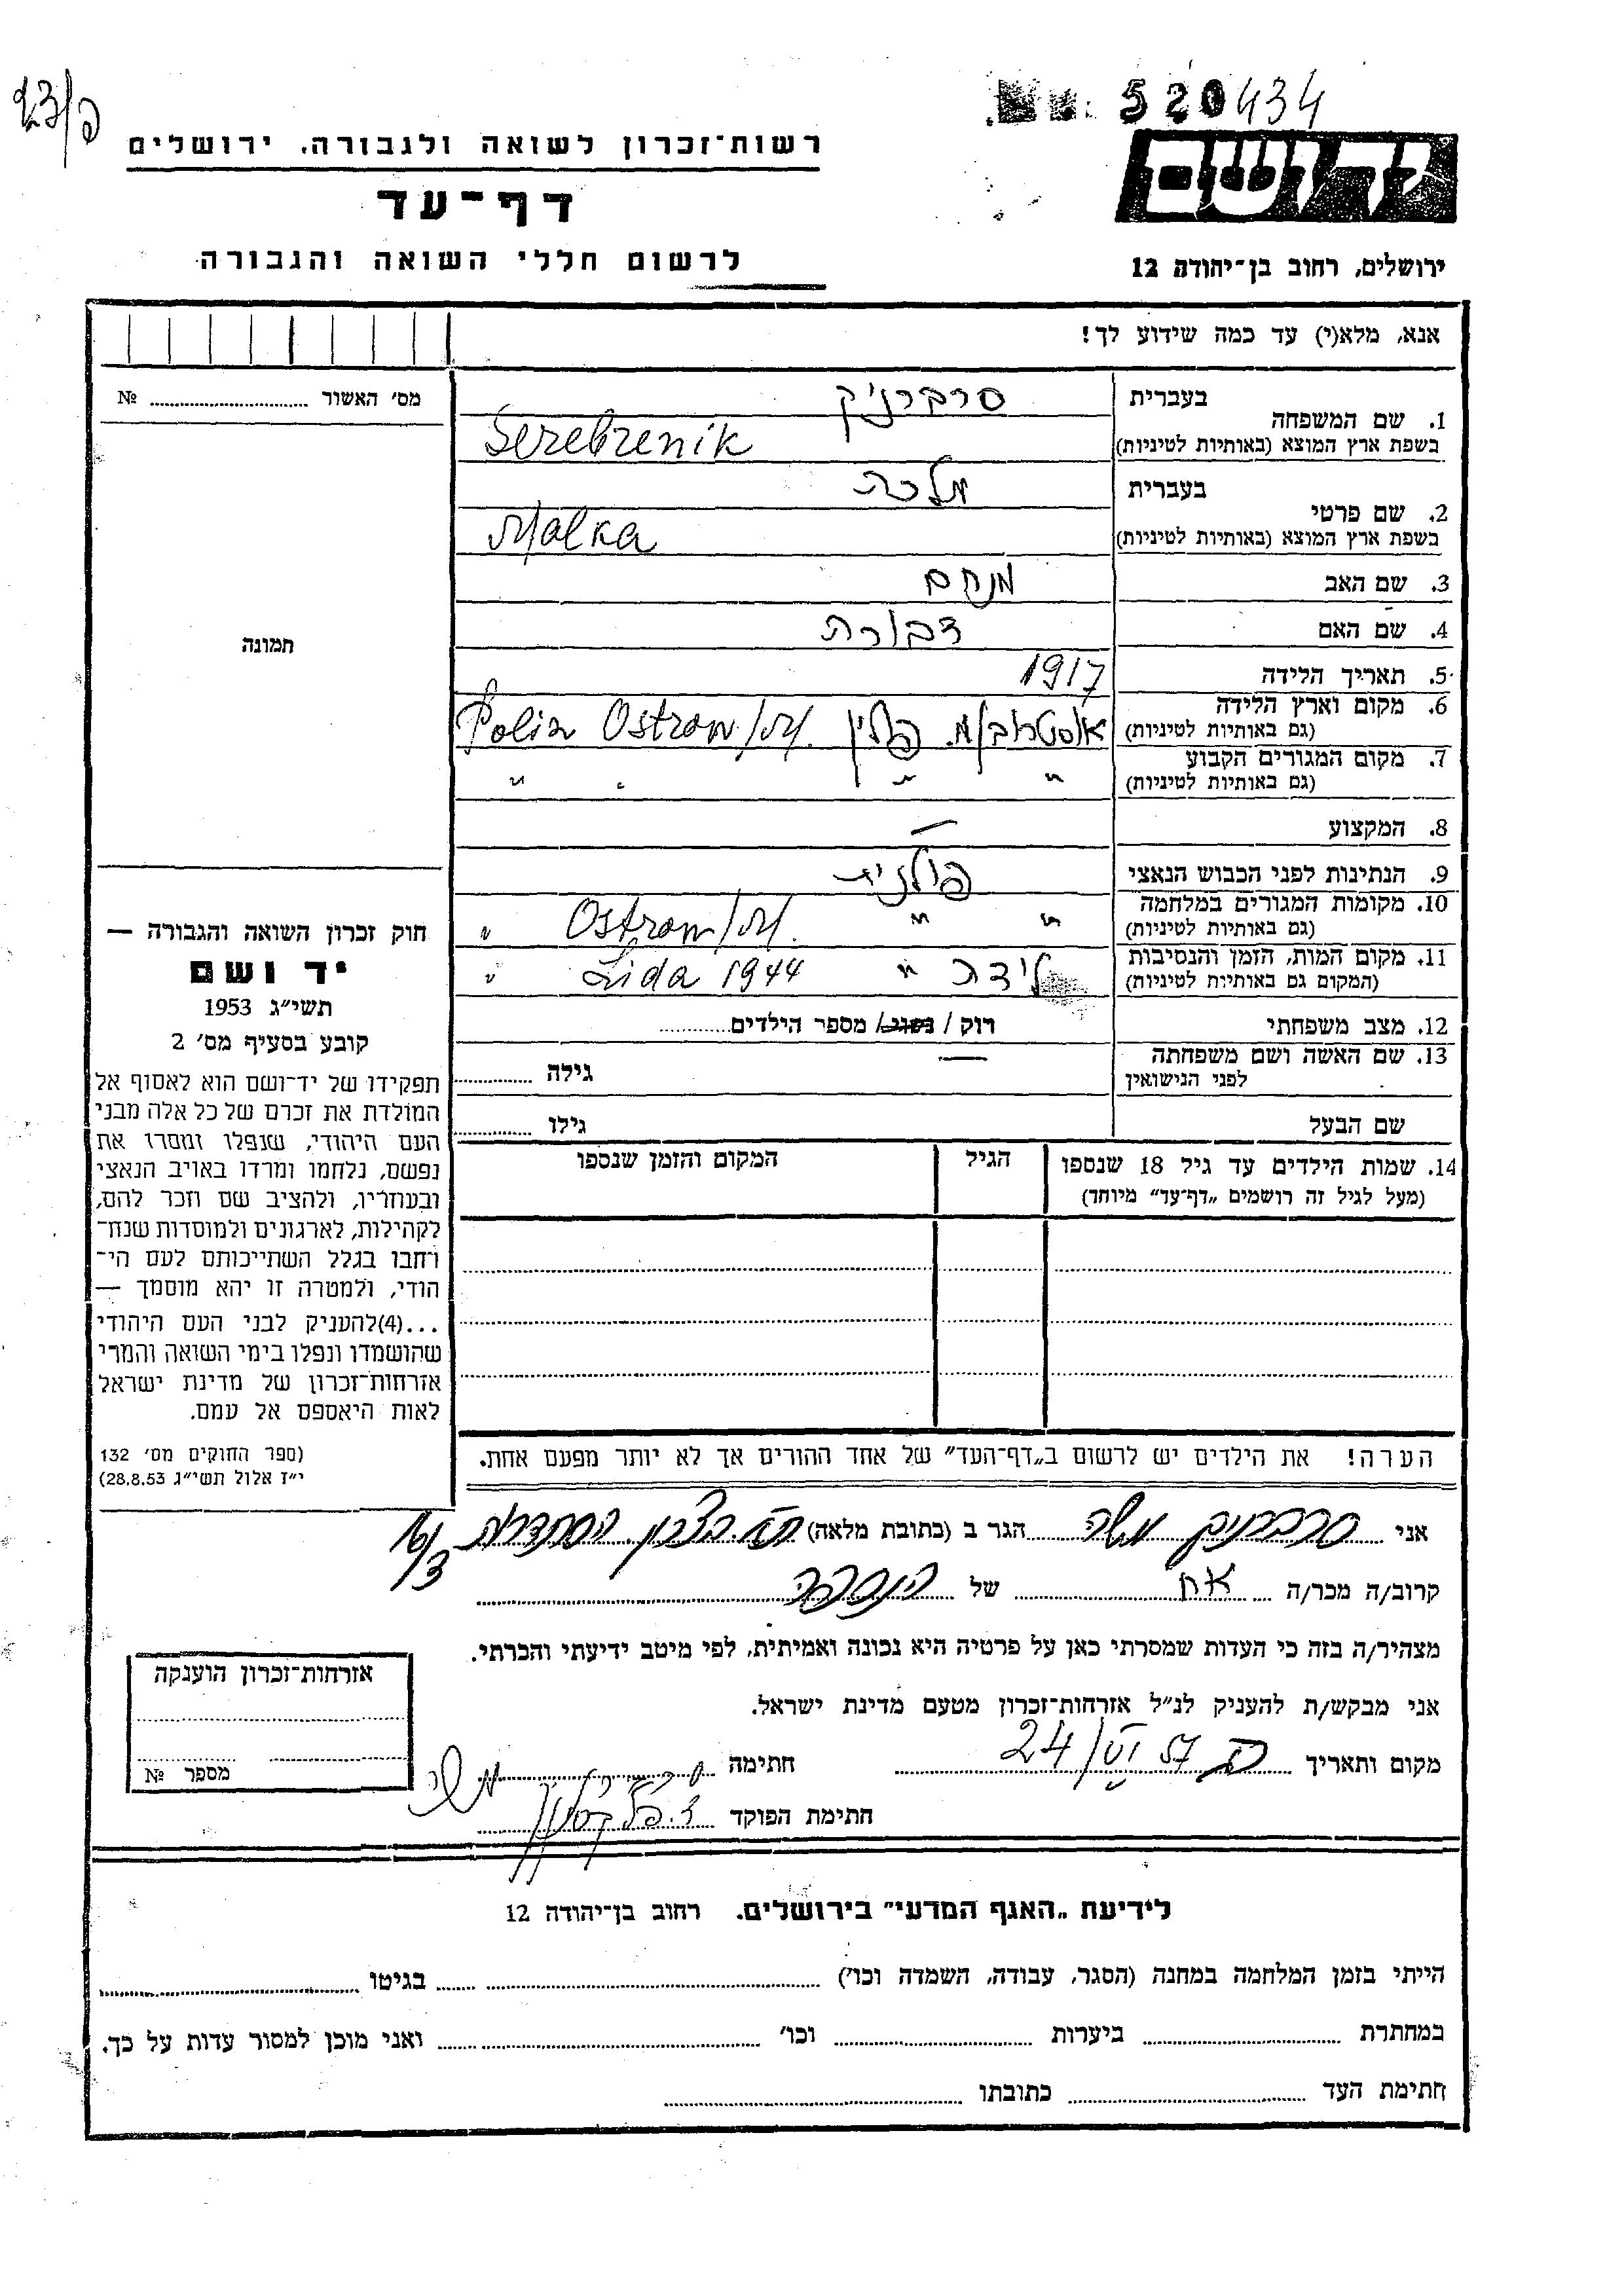 520434
23/פ
רשות־זכרון לשואה ולגבורה, ירושלים
דף־עד
לרשום חללי השואה והגבורה
יד ושם
ירושלים, רחוב בן־יהודה 12
אנא, מלא(י) עד כמה שידוע לך!
מס׳ האשור № 
בעברית סרברניק
1. שם המשפחה
בשפת ארץ המוצא (באותיות לטיניות) Serebrenik
בעברית מלכה
2. שם פרטי
בשפת ארץ המוצא (באותיות לטיניות) Malka
3. שם האב מנחם
4. שם האם דבורה
5. תאריך הלידה 1917
6. מקום וארץ הלידה
(גם באותיות לטיניות) אוסטרוב/מ. פולין Ostrow/M. Polin
7. מקום המגורים הקבוע
(גם באותיות לטיניות) " " " "
8. המקצוע —
9. הנתינות לפני הכבוש הנאצי פולנית
10. מקומות המגורים במלחמה
(גם באותיות לטיניות) " " Ostrow/M. "
11. מקום המות, הזמן והנסיבות
(המקום גם באותיות לטיניות) לידה " Lida 1944 "
12. מצב משפחתי רוק / נשוי / מספר הילדים
13. שם האשה ושם משפחתה — גילה
לפני הנישואין
שם הבעל גילו
14. שמות הילדים עד גיל 18 שנספו הגיל המקום והזמן שנספו
(מעל לגיל זה רושמים „דף־עד” מיוחד)
הערה! את הילדים יש לרשום ב„דף־העד” של אחד ההורים אך לא יותר מפעם אחת.
תמונה
חוק זכרון השואה והגבורה —
יד ושם
תשי״ג 1953
קובע בסעיף מס׳ 2
תפקידו של יד־ושם הוא לאסוף אל
המולדת את זכרם של כל אלה מבני
העם היהודי, שנפלו ומסרו את
נפשם, נלחמו ומרדו באויב הנאצי
ובעוזריו, ולהציב שם וזכר להם,
לקהילות, לארגונים ולמוסדות שנח־
רחבו בגלל השתייכותם לעם הי־
הודי, ולמטרה זו יהא מוסמך —
...(4)להעניק לבני העם היהודי
שהושמדו ונפלו בימי השואה והמרי
אזרחות־זכרון של מדינת ישראל
לאות היאספם אל עמם.
(ספר החוקים מס׳ 132
י״ז אלול תשי״ג 28.8.53)
אני סרברניק משה הגר ב (כתובת מלאה)
16/3
קרוב/ה מכר/ה אח של הנספה
מצהיר/ה בזה כי העדות שמסרתי כאן על פרטיה היא נכונה ואמיתית, לפי מיטב ידיעתי והכרתי.
אני מבקש/ת להעניק לנ״ל אזרחות־זכרון מטעם מדינת ישראל.
מקום ותאריך 24/VI 57 חתימה סרברניק משה
חתימת הפוקד
אזרחות־זכרון הוענקה
מספר №
לידיעת „האגף המדעי” בירושלים. רחוב בן־יהודה 12
הייתי בזמן המלחמה במחנה (הסגר, עבודה, השמדה וכו׳) בגיטו
במחתרת ביערות וכו׳ ואני מוכן למסור עדות על כך.
חתימת העד כתובתו